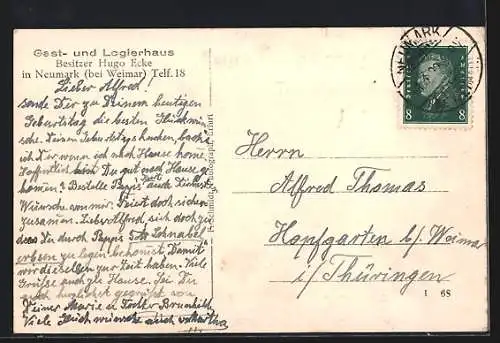 Gast- und Logierhaus
Besitzer Hugo Ecke
in Neumark (bei Weimar) Telf. 18
Lieber Alfred!
sende Dir zu Deinem heutigen
Geburtstag die besten Glückwün
sche. Deinen Geburtstagskuchen, backe
ich Dir wenn ich nach Hause komme.
Hoffentlich bist Du gut nach Hause ge
kommen? Bestelle Pappis auch Deine
Wünsche von mir. Feiert doch sicher
zusammen. Lieber Alfred, sieh doch zu
dass Du durch Pappis
erben zu legen bekommst, Damit
wir dieselben zur Zeit haben. Viele
Grüsse auch zu Hause. Sei Du
auch herzlichst gegrüßt von
Deiner Marie &amp; Tochter Brunhilde
Viele Glückwünsche auch
NEUMARK
DEUTSCHES REICH
8 8
Herrn
Alfred Thomas
Hopfgarten b/ Weimar
i/ Thüringen
1 68